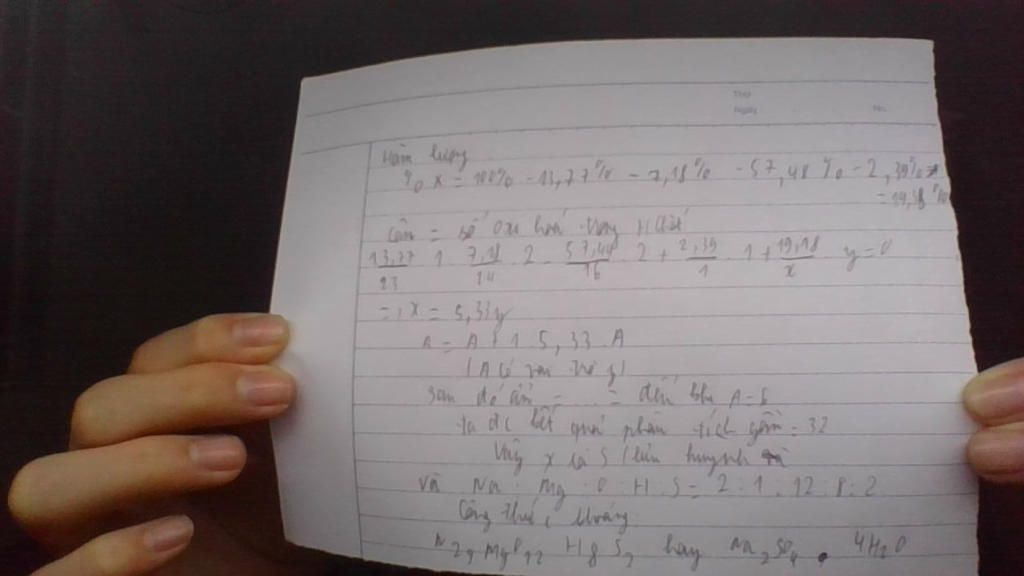 Thứ
Ngày No.
Hàm lượng
% x = 100% - 13,77% - 7,18% - 57,48% - 2,39%
= 19,18%
= số oxi hoá trong
13,77/23 . 1 7,18/24 . 2 - 57,48/16 . 2 + 2,39/1 . 1 + 19,18/x . y = 0
=> x = 5,33y
A = A + 1 . 5,33 . A
(A có vai trò y)
sau đó ấn = ... = đến khi A = 6
ta đc kết quả phân tích gần = 32
Vậy x là S (lưu huỳnh
và Na : Mg : O : H : S = 2 : 1 : 12 : 8 : 2
Công thức khoáng
Na2MgO12H8S2 hay Na2SO4 . 4H2O